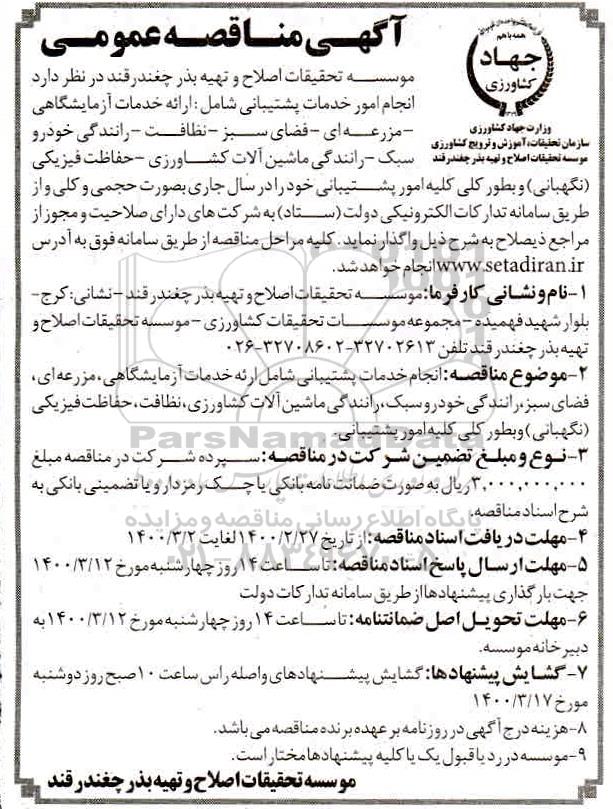 آگهی مناقصه عمومی
همه با هم
جهاد
کشاورزی
وزارت جهاد کشاورزی
سازمان تحقیقات، آموزش و ترویج کشاورزی
موسسه تحقیقات اصلاح و تهیه بذر چغندر قند
موسسه تحقیقات اصلاح و تهیه بذر چغندر قند در نظر دارد
انجام امور خدمات پشتیبانی شامل : ارائه خدمات آزمایشگاهی
-مزرعه ای - فضای سبز - نظافت - رانندگی خودرو
سبک - رانندگی ماشین آلات کشاورزی - حفاظت فیزیکی
(نگهبانی) و بطور کلی کلیه امور پشتیبانی خود را در سال جاری بصورت حجمی و کلی و از
طریق سامانه تدارکات الکترونیکی دولت (ستاد) به شرکت های دارای صلاحیت و مجوز از
مراجع ذیصلاح به شرح ذیل واگذار نماید. کلیه مراحل مناقصه از طریق سامانه فوق به آدرس
www.setadiran.ir انجام خواهد شد.
۱-نام و نشانی کارفرما: موسسه تحقیقات اصلاح و تهیه بذر چغندر قند - نشانی: کرج-
بلوار شهید فهمیده - مجموعه موسسات تحقیقات کشاورزی - موسسه تحقیقات اصلاح و
تهیه بذر چغندر قند تلفن ۳۲۷۰۲۶۱۳-۳۲۷۰۸۶۰۲-۰۲۶
۲-موضوع مناقصه: انجام خدمات پشتیبانی شامل ارئه خدمات آزمایشگاهی، مزرعه ای،
فضای سبز، رانندگی خودرو سبک، رانندگی ماشین آلات کشاورزی، نظافت، حفاظت فیزیکی
(نگهبانی) و بطور کلی کلیه امور پشتیبانی.
ParsNamadData
۳-نوع و مبلغ تضمین شرکت در مناقصه: سپرده شرکت در مناقصه مبلغ
۳,۰۰۰,۰۰۰,۰۰۰ ریال به صورت ضمانت نامه بانکی یا چک رمزدار و یا تضمینی بانکی به
شرح اسناد مناقصه.
پایگاه اطلاع رسانی مناقصه و مزایده
۴-مهلت دریافت اسناد مناقصه: از تاریخ ۱۴۰۰/۲/۲۷ لغایت ۱۴۰۰/۳/۲
۵-مهلت ارسال پاسخ اسناد مناقصه: تا ساعت ۱۴ روز چهارشنبه مورخ ۱۴۰۰/۳/۱۲
جهت بارگذاری پیشنهادها از طریق سامانه تدارکات دولت
۶-مهلت تحویل اصل ضمانتنامه: تا ساعت ۱۴ روز چهارشنبه مورخ ۱۴۰۰/۳/۱۲ به
دبیرخانه موسسه.
۷-گشایش پیشنهادها: گشایش پیشنهادهای واصله راس ساعت ۱۰ صبح روز دوشنبه
مورخ ۱۴۰۰/۳/۱۷
۸-هزینه درج آگهی در روزنامه بر عهده برنده مناقصه می باشد.
۹-موسسه در رد یا قبول یک یا کلیه پیشنهادها مختار است.
موسسه تحقیقات اصلاح و تهیه بذر چغندر قند